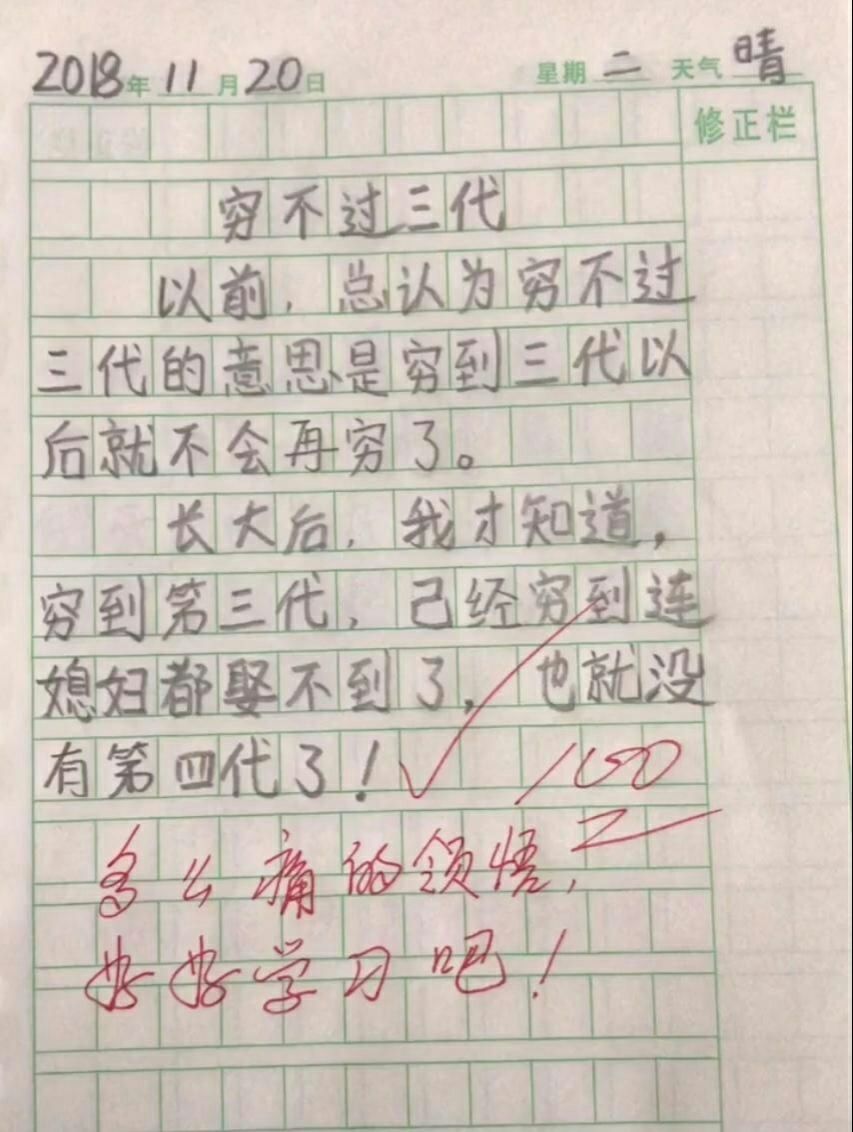 2018年11月20日 星期二 天气晴
修正栏
穷不过三代
以前，总认为穷不过
三代的意思是穷到三代以
后就不会再穷了。
长大后，我才知道，
穷到第三代，己经穷到连
媳妇都娶不到了，也就没
有第四代了！
100
多么痛的领悟，
好好学习吧！